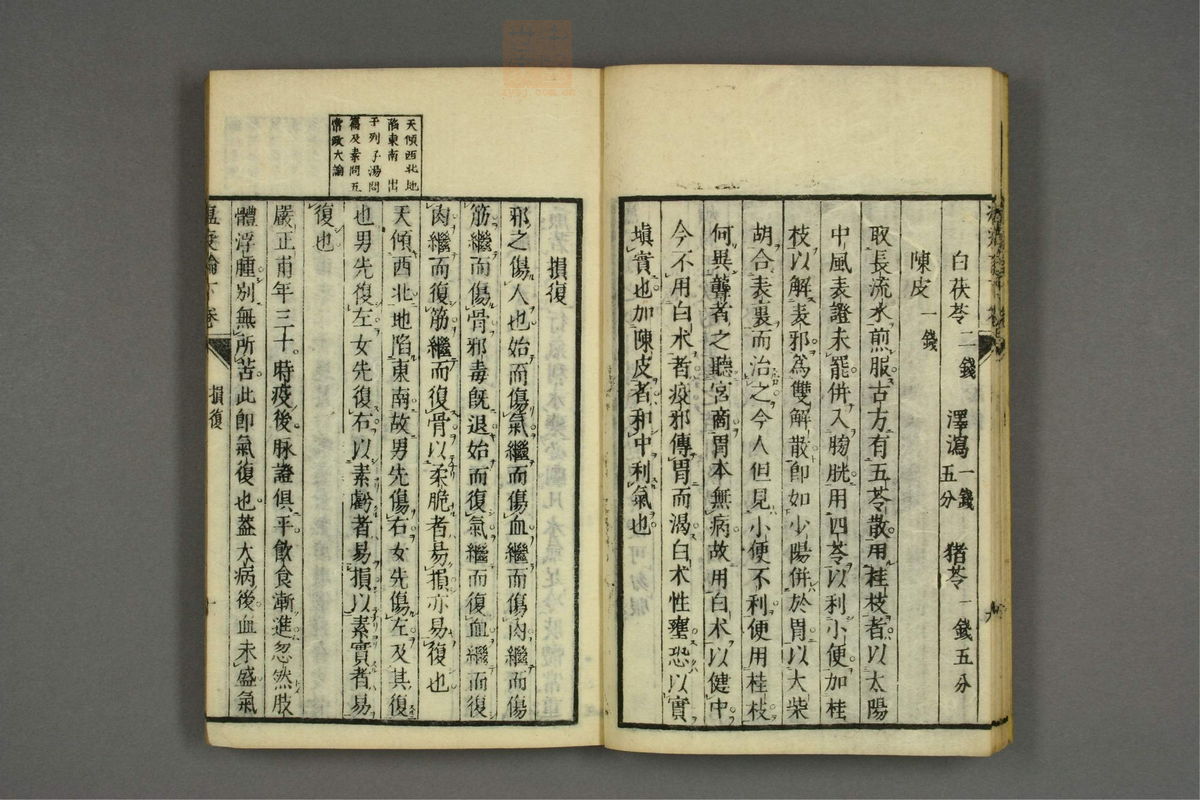 白茯苓二錢 澤瀉一錢五分 猪苓一錢五分
陳皮一錢
取長流水煎服古方有五苓散用桂枝者以太陽
中風表證未罷併入膀胱用四苓以利小便加桂
枝以解表邪為雙解散即如少陽併於胃以大柴
胡合表裏而治之今人但見小便不利便用桂枝
何異聾者之聽宮商胃本無病故用白术以健中
今不用白术者疫邪傳胃而渴白术性壅恐以實
填實也加陳皮者和中利氣也
天傾西北地
陷東南出
于列子湯問
篇及素問五
常政大論
損復
邪之傷人也始而傷氣繼而傷血繼而傷肉繼而傷
筋繼而傷骨邪毒旣退始而復氣繼而復血繼而復
肉繼而復筋繼而復骨以柔脆者易損亦易復也
天傾西北地陷東南故男先傷右女先傷左及其復
也男先復左女先復右以素虧者易損以素實者易
復也
嚴正甫年三十時疫後脉證俱平飲食漸進忽然肢
體浮腫別無所苦此卽氣復也葢大病後血未盛氣
溫疫論下卷 損復